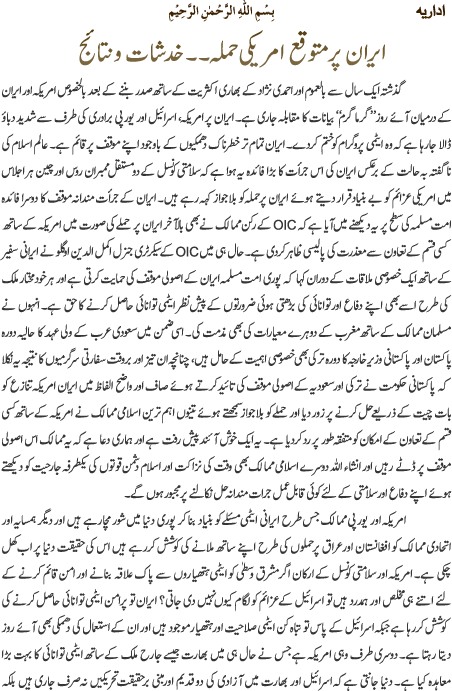 اداریہ
بِسْمِ اللّٰہِ الرَّحْمٰنِ الرَّحِیْمِ
ایران پر متوقع امریکی حملہ۔۔خدشات و نتائج
گذشتہ ایک سال سے بالعموم اور احمدی نژاد کے بھاری اکثریت کے ساتھ صدر بننے کے بعد بالخصوص امریکہ اور ایران
کے درمیان آئے روز ’’گرما گرم‘‘ بیانات کا مقابلہ جاری ہے۔ ایران پر امریکہ، اسرائیل اور یورپی برادری کی طرف سے شدید دباؤ
ڈالا جارہا ہے کہ وہ ایٹمی پروگرام کو ختم کردے۔ ایران تمام تر خطرناک دھمکیوں کے باوجود اپنے موقف پر قائم ہے۔ عالم اسلام کی
ناگفتہ بہ حالت کے برعکس ایران کی اس جرأت کا بڑا فائدہ یہ ہوا ہے کہ سلامتی کونسل کے دو مستقل ممبران روس اور چین ہر اجلاس
میں امریکی عزائم کو بے بنیاد قرار دیتے ہوئے ایران پر حملہ کو بلا جواز کہہ رہے ہیں۔ ایران کے جرأت مندانہ موقف کا دوسرا فائدہ
امت مسلمہ کی سطح پر یہ دیکھنے میں آیا ہے کہ OIC کے رکن ممالک نے بھی بالآخر ایران پر حملے کی صورت میں امریکہ کے ساتھ
کسی قسم کے تعاون سے معذرت کی پالیسی ظاہر کردی ہے۔ حال ہی میں OIC کے سیکرٹری جنرل اکمل الدین اوگلو نے ایرانی سفیر
کے ساتھ ایک خصوصی ملاقات کے دوران کہا کہ پوری امت مسلمہ ایران کے اصولی موقف کی حمایت کرتی ہے اور ہر خود مختار ملک
کی طرح اسے بھی اپنے دفاع اور توانائی کی بڑھتی ہوئی ضرورتوں کے پیش نظر ایٹمی توانائی حاصل کرنے کا حق ہے۔ انہوں نے
مسلمان ممالک کے ساتھ مغرب کے دوہرے معیارات کی بھی مذمت کی۔ اسی ضمن میں سعودی عرب کے ولی عہد کا حالیہ دورہ
پاکستان اور پاکستانی وزیر خارجہ کا دورہ ترکی بھی خصوصی اہمیت کے حامل ہیں، چنانچہ ان تیز اور بروقت سفارتی سرگرمیوں کا نتیجہ یہ نکلا
کہ پاکستانی حکومت نے ترکی اور سعودیہ کے اصولی موقف کی تائید کرتے ہوئے صاف اور واضح الفاظ میں ایران امریکہ تنازع کو
بات چیت کے ذریعے حل کرنے پر زور دیا اور حملے کو بلا جواز سمجھتے ہوئے تینوں اہم ترین اسلامی ممالک نے امریکہ کے ساتھ کسی
قسم کے تعاون کے امکان کو متفقہ طور پر رد کردیا ہے۔ یہ ایک خوش آئند پیش رفت ہے اور ہماری دعا ہے کہ یہ ممالک اس اصولی
موقف پر ڈٹے رہیں اور انشاء اللہ دوسرے اسلامی ممالک بھی وقت کی نزاکت اور اسلام دشمن قوتوں کی یکطرفہ جارحیت کو دیکھتے
ہوئے اپنے دفاع اور سلامتی کے لئے کوئی قابل عمل جرات مندانہ حل نکالنے پر مجبور ہوں گے۔
امریکہ اور یورپی ممالک جس طرح ایرانی ایٹمی مسئلے کو بنیاد بنا کر پوری دنیا میں شور مچا رہے ہیں اور دیگر ہمسایہ اور
اتحادی ممالک کو افغانستان اور عراق پر حملوں کی طرح اپنے ساتھ ملانے کی کوشش کر رہے ہیں اس کی حقیقت دنیا پر اب کھل
چکی ہے۔ امریکہ اور سلامتی کونسل کے ارکان اگر مشرق وسطیٰ کو ایٹمی ہتھیاروں سے پاک علاقہ بنانے اور امن قائم کرنے کے
لئے اتنے ہی مخلص اور ہمدرد ہیں تو اسرائیل کے عزائم کو لگام کیوں نہیں دی جاتی؟ ایران تو پر امن ایٹمی توانائی حاصل کرنے کی
کوشش کر رہا ہے جبکہ اسرائیل کے پاس تو تباہ کن ایٹمی صلاحیت اور ہتھیار موجود ہیں اور ان کے استعمال کی دھمکی بھی آئے روز
دیتا رہتا ہے۔ دوسری طرف وہی امریکہ ہے جس نے حال ہی میں بھارت جیسے جارح ملک کے ساتھ ایٹمی توانائی کا بہت بڑا
معاہدہ کیا ہے۔ دنیا جانتی ہے کہ اسرائیل اور بھارت میں آزادی کی دو قدیم اور مبنی بر حقیقت تحریکیں نہ صرف جاری ہیں بلکہ